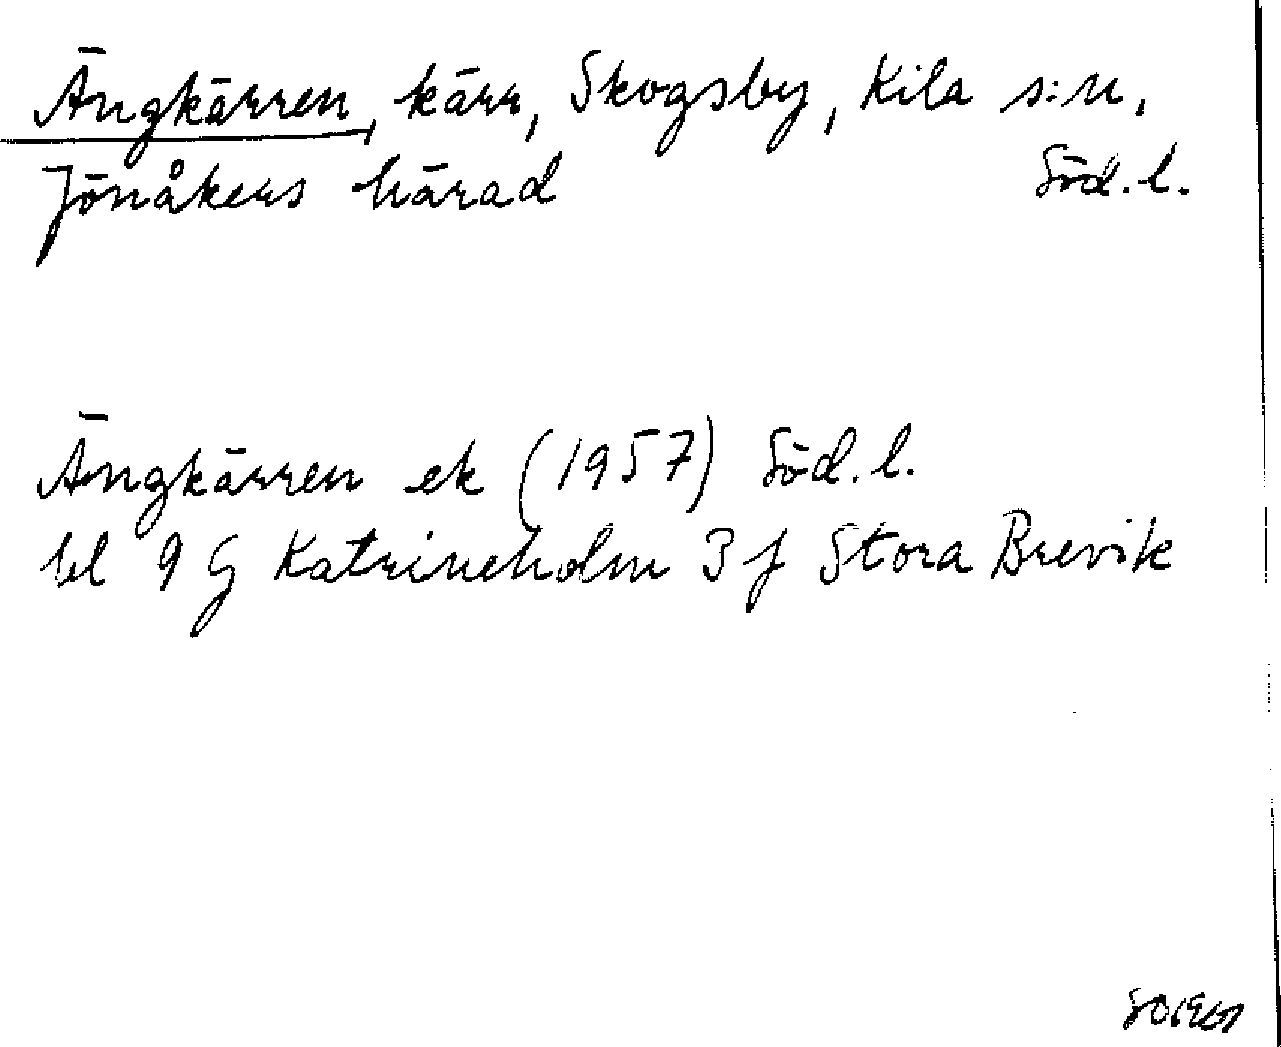 Ängkärren, kärr, Skogsby, Kila s:n,
Jönåkers härad Söd. l.
Ängkärren ek (1957) Söd. l.
bl 9 G Katrineholm 3 f Stora Brevik